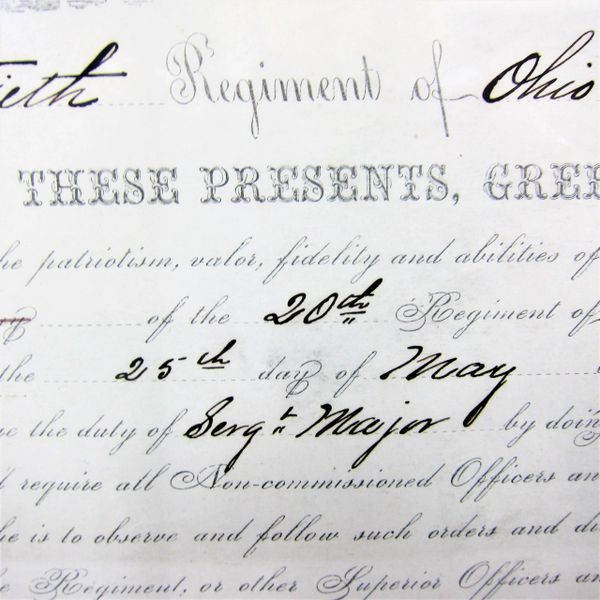 tieth Regiment of Ohio
THESE PRESENTS, GREE
he patriotism, valor, fidelity and abilities of
of the 20th Regiment of
the 25th day of May
e the duty of Sergt Major by doin
require all Non-commissioned Officers an
he is to observe and follow such orders and di
e Regiment, or other Superior Officers an